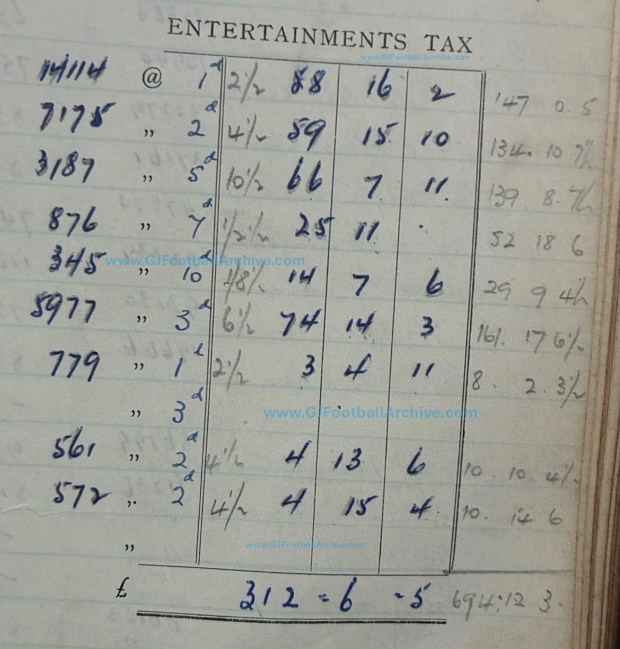 ENTERTAINMENTS TAX
www.GJFootballArchive.com
14114 @ 1d 2½ 58 16 2 147 0 5
7175 „ 2d 4½ 59 15 10 134. 10 7½
3187 „ 5d 10½ 66 7 11 139 8. 7½
876 „ 7d 1/2½ 25 11 . 52 18 6
www.GJFootballArchive.com
345 „ 10d 1/8½ 14 7 6 29 9 4½
5977 „ 3d 6½ 74 14 3 161. 17 6½
779 „ 1d 2½ 3 4 11 8. 2. 3½
„ 3d
www.GJFootballArchive.com
561 „ 2d 4½ 4 13 6 10. 10. 4½
572 „ 2d 4½ 4 15 4. 10. 14 6
„
www.GJFootballArchive.com
£ 312 = 6 = 5 694:12 3.